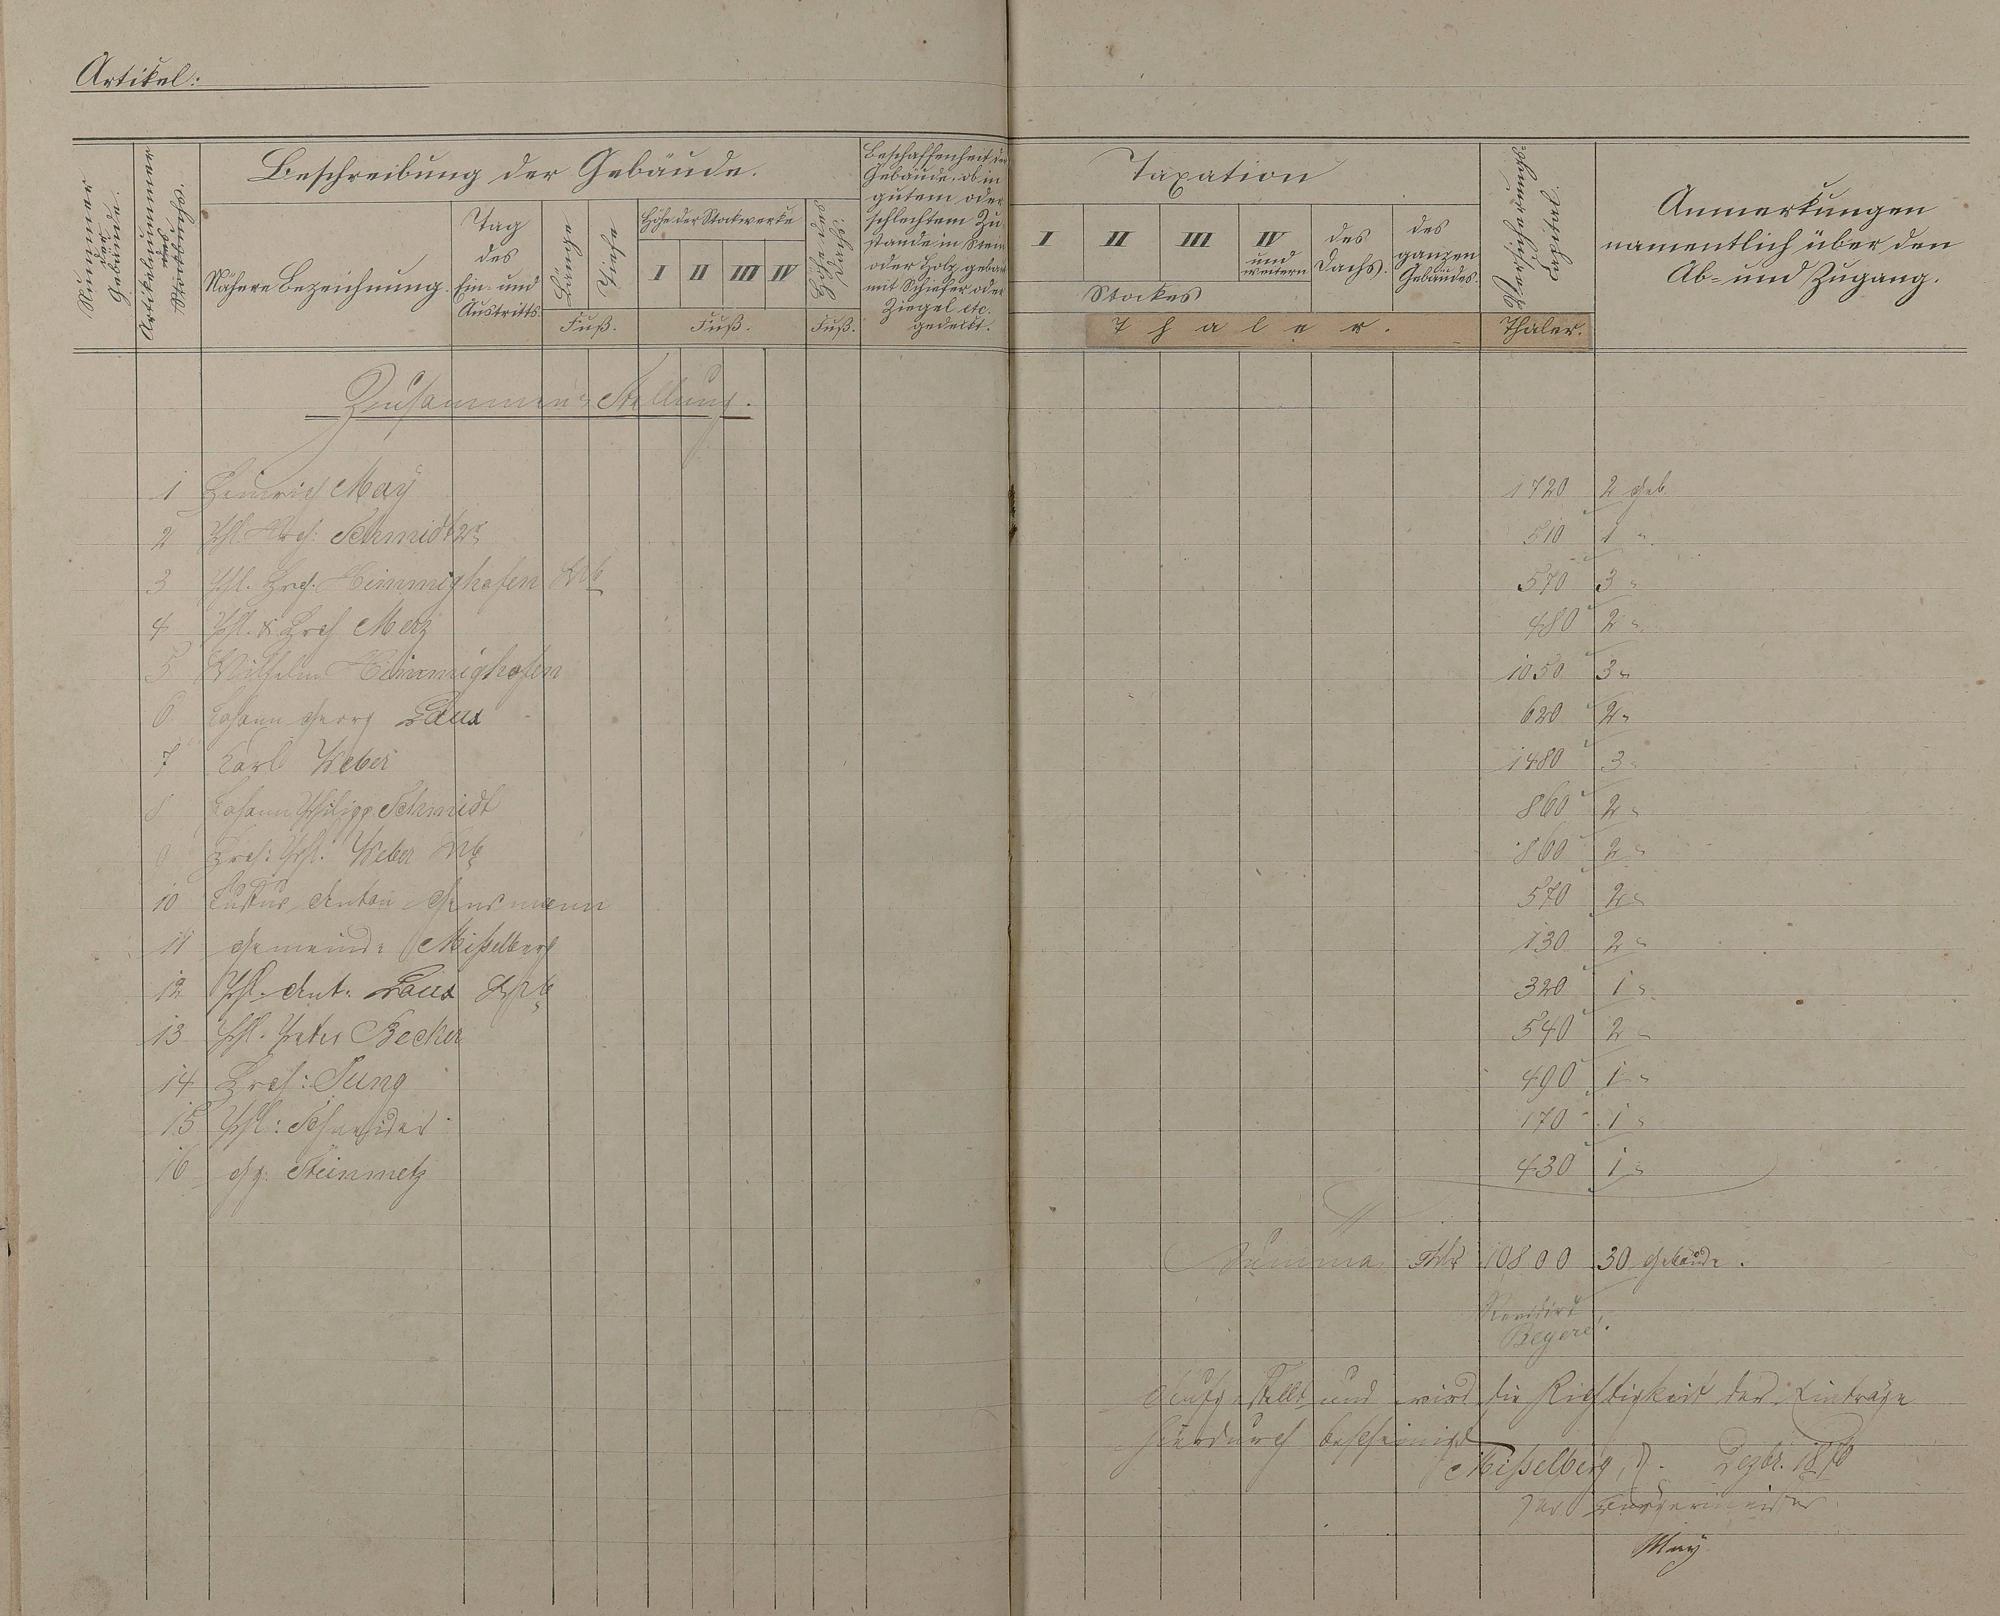 Artikel:
Nummer der Gebäude.
Artikelnummer des Stockbuchs.
Beschreibung der Gebäude.
Nähere Bezeichnung.
Tag des Ein- und Austritts.
Länge
Tiefe
Fuß.
Höhe der Stockwerke
I II III IV
Fuß.
Höhe des Dachs.
Fuß.
Beschaffenheit der
Gebäude, ob in
gutem oder
schlechtem Zu-
stande in Stein
oder Holz gebaut
mit Schiefer oder
Ziegel etc.
gedeckt.
Taxation
I II III IV und weitern
Stockes
des Dachs.
des ganzen Gebäudes.
Thaler.
Versicherungs-Capital.
Thaler.
Anmerkungen
namentlich über den
Ab- und Zugang.
Zusammen-Stellung.
1 Heinrich May 1720 2 Geb.
2 Phl. Hrch: Schmidt 2r 510 1 "
3 Phl. Hrch. Heimmighofen Wb 570 3 "
4 Phl. & Hrch Merz 480 2 "
5 Wilhelm Heimmighofen 1050 3 "
6 Johann Georg Laux 620 2 "
7 Karl Weber 1480 3 "
8 Johann Philipp Schmidt 860 2 "
9 Hrch: Phl. Weber Wb 860 2 "
10 Justus Anton 570 2 "
11 Gemeinde Mißelberg 130 2 "
12 Phl. Ant. Laux 320 1 "
13 Phl. Peter Becker 540 2 "
14 Hrch: Jung 490 1 "
15 Phl: Schneider 170 1 "
16 Gg. Steinmetz 430 1 "
Summa Thlr 10800 30 Gebäude.
Revidirt
Beyerle.
Aufgestellt und wird die Richtigkeit der Einträge
hierdurch bescheinigt
Mißelberg, d. Dezbr. 1876
Der Bürgermeister
May